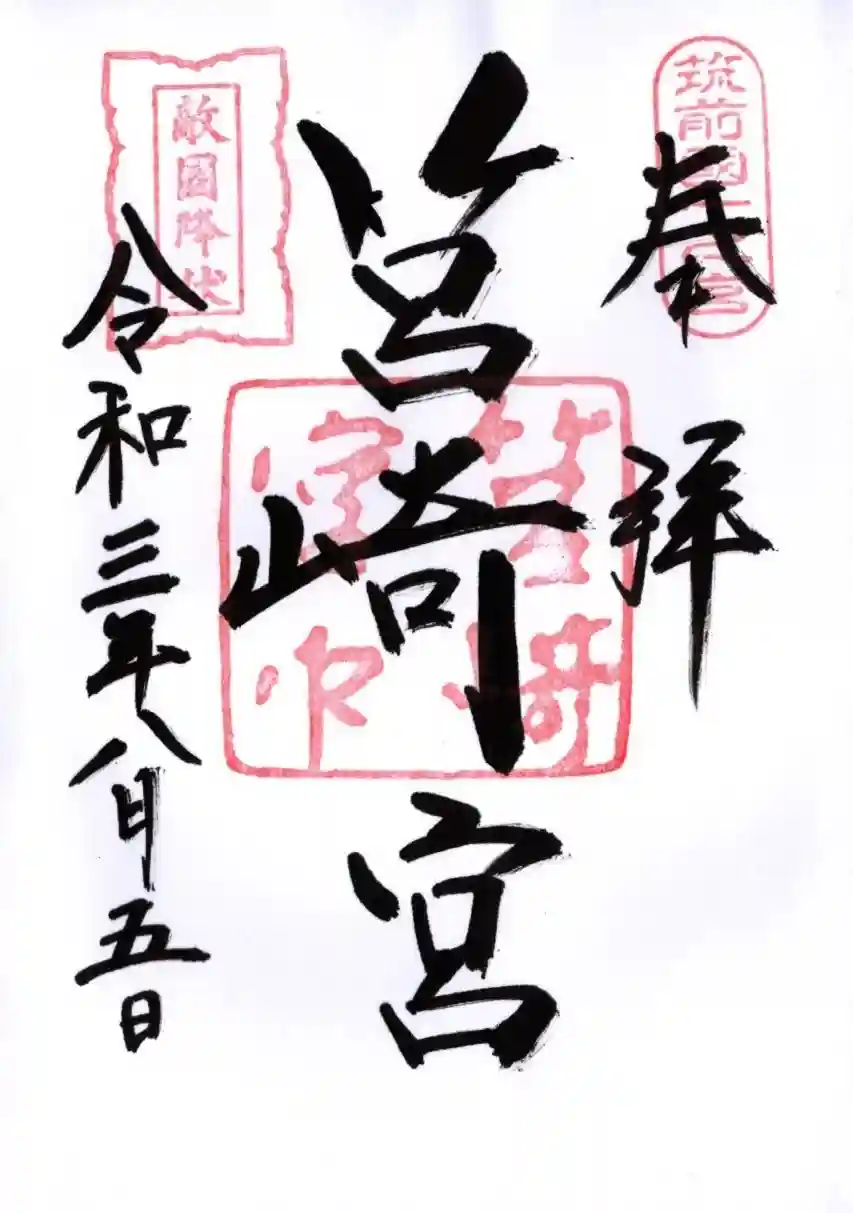 筑前國一之宮
奉拝
筥崎宮
筥崎宮印
敵國降伏
令和三年八月五日